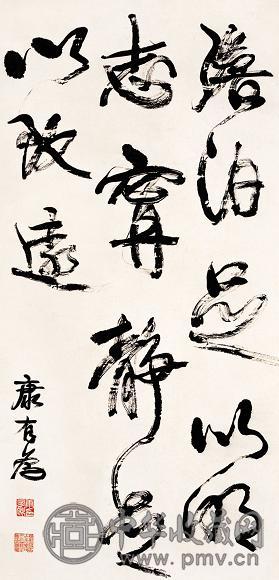 澹泊足以明
志寧靜足
以致遠
康有為
中华收藏网
www.pmv.cn